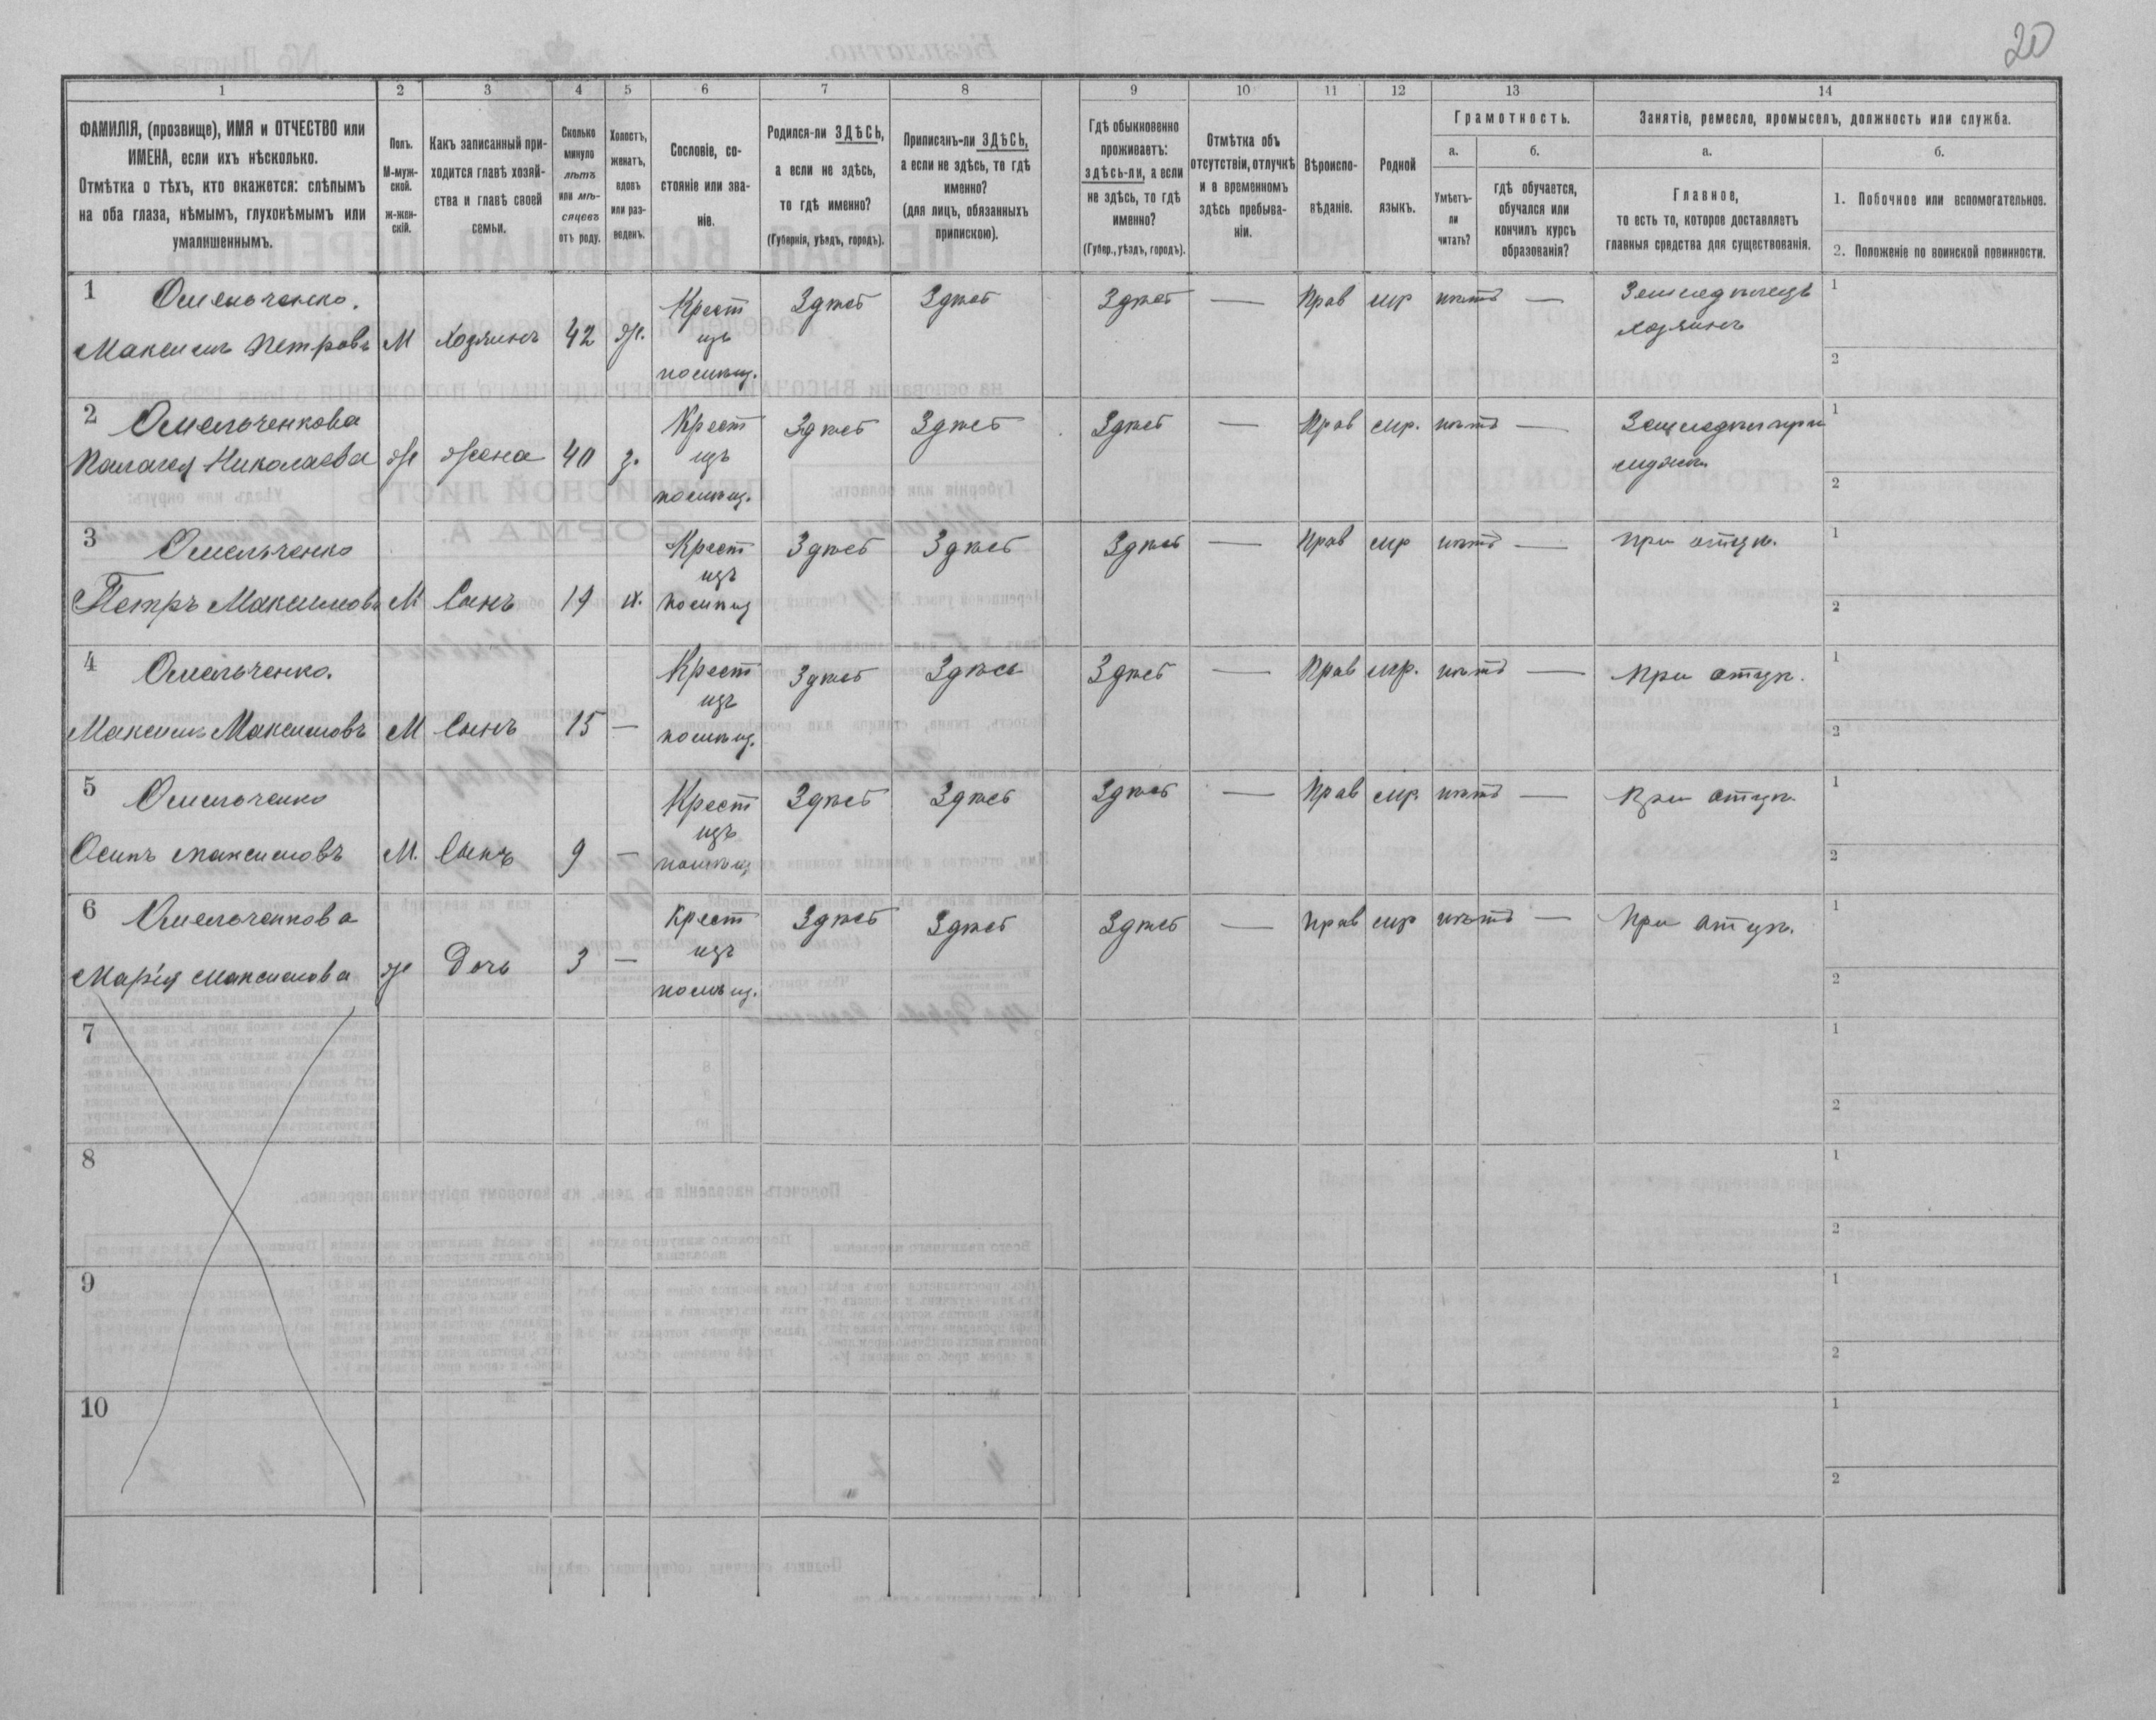 20
1 2 3 4 5 6 7 8 9 10 11 12 13 14
ФАМИЛІЯ, (прозвище), ИМЯ и ОТЧЕСТВО или
ИМЕНА, если ихъ нѣсколько.
Отмѣтка о тѣхъ, кто окажется: слѣпымъ
на оба глаза, нѣмымъ, глухонѣмымъ или
умалишеннымъ.
Полъ.
М-муж-
ской.
ж-жен-
скій.
Какъ записанный при-
ходится главѣ хозяй-
ства и главѣ своей
семьи.
Сколько
минуло
лѣтъ
или мѣ-
сяцевъ
отъ роду.
Холостъ,
женатъ,
вдовъ
или раз-
веденъ.
Сословіе, со-
стояніе или зва-
ніе.
Родился-ли ЗДѢСЬ,
а если не здѣсь,
то гдѣ именно?
(Губернія, уѣздъ, городъ).
Приписанъ-ли ЗДѢСЬ,
а если не здѣсь, то гдѣ
именно?
(для лицъ, обязанныхъ
припискою).
Гдѣ обыкновенно
проживаетъ:
здѣсь-ли, а если
не здѣсь, то гдѣ
именно?
(Губер., уѣздъ, городъ).
Отмѣтка объ
отсутствіи, отлучкѣ
и о временномъ
здѣсь пребыва-
ніи.
Вѣроиспо-
вѣданіе.
Родной
языкъ.
Грамотность.
а.
Умѣетъ-
ли
читать?
б.
гдѣ обучается,
обучался или
кончилъ курсъ
образованія?
Занятіе, ремесло, промыселъ, должность или служба.
а.
Главное,
то есть то, которое доставляетъ
главныя средства для существованія.
б.
1. Побочное или вспомогательное.
2. Положеніе по воинской повинности.
1 Омельченко. Крест Здѣсь Здѣсь Здѣсь — Прав мр нѣтъ — Земледѣлецъ 1
Максимъ Петровъ М Хозяинъ 42 ж. изъ хозяинъ
помѣщ. 2
2 Омельченкова Крест Здѣсь Здѣсь Здѣсь — Прав мр. нѣтъ — Земледѣл при 1
Палагея Николаева Ж Жена 40 з. изъ мужѣ
помѣщ. 2
3 Омельченко Крест Здѣсь Здѣсь Здѣсь — Прав мр нѣтъ — При отцѣ. 1
изъ
Петръ Максимовъ М Сынъ 19 х. помѣщ 2
4 Омельченко. Крест Здѣсь Здѣсь Здѣсь — Прав мр. нѣтъ — При отцѣ. 1
изъ
Максимъ Максимовъ М Сынъ 15 — помѣщ. 2
5 Омельченко Крест Здѣсь Здѣсь Здѣсь — Прав мр. нѣтъ — При отцѣ. 1
изъ
Осипъ Максимовъ М. Сынъ 9 — помѣщ 2
6 Омельченкова Крест Здѣсь Здѣсь Здѣсь — Прав мр нѣтъ — При отцѣ. 1
изъ
Марія Максимова ж Дочь 3 — помѣщ. 2
7 1
2
8 1
2
9 1
2
10 1
2